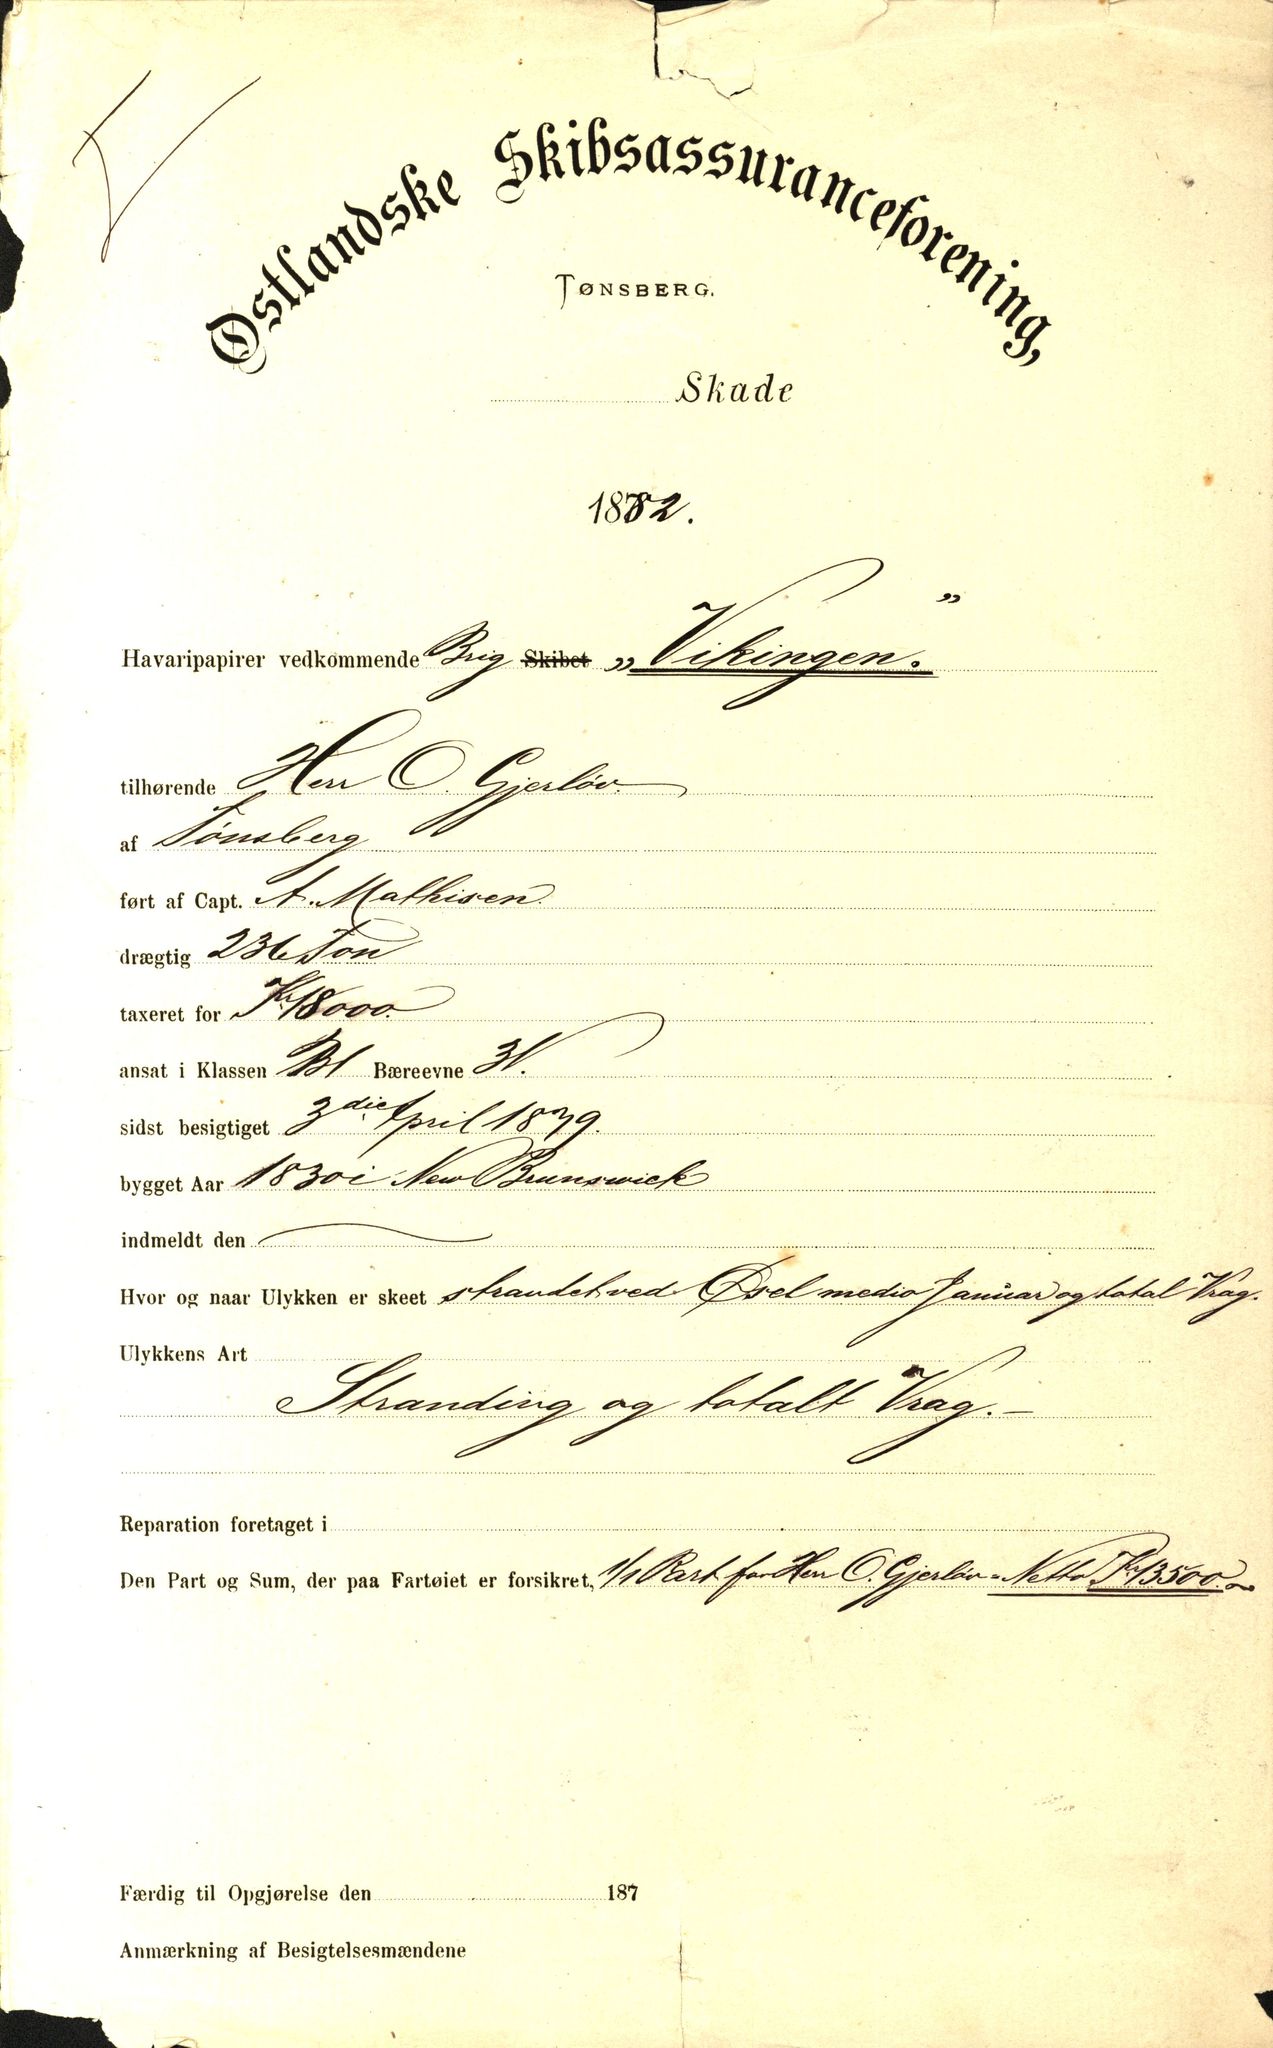 Østlandske Skibsassuranceforening,
TØNSBERG.
Skade
1882.
Havaripapirer vedkommende Brig Skibet „Vikingen."
tilhørende Herr O. Gjerløv.
af Tønsberg
ført af Capt. A. Mathisen.
drægtig 236 Ton
taxeret for Kr 18000.
ansat i Klassen B1 Bæreevne
sidst besigtiget 3die April 1879.
bygget Aar 1830 i New Brunswick
indmeldt den
Hvor og naar Ulykken er skeet strandet ved Øsel medio Januar og total Vrag.
Ulykkens Art
Stranding og totalt Vrag. –
Reparation foretaget i
Den Part og Sum, der paa Fartøiet er forsikret, 1/1 Part for Herr O. Gjerløv = Netto Kr 13500.
Færdig til Opgjørelse den 187
Anmærkning af Besigtelsesmændene